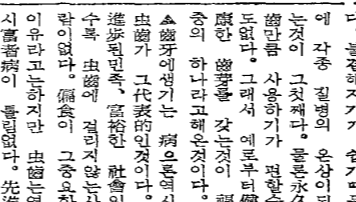 에 각종 질병의 온상이 되
는것이 그첫째다。물론永久
齒만큼 사용하기가 편할수
도없다。그래서 예로부터 健
康한 齒芽를 갖는것이 福
중의 하나라고해온것이다。
▲齒牙에생기는 病으론역시
虫齒가 그代表的인것이다。
進步된민족、富裕한 社會일
수록 虫齒에 걸리지않는사
람이없다。偏食이 그중요한
이유라고는하지만 虫齒는역
시富者病이 틀림없다。先進